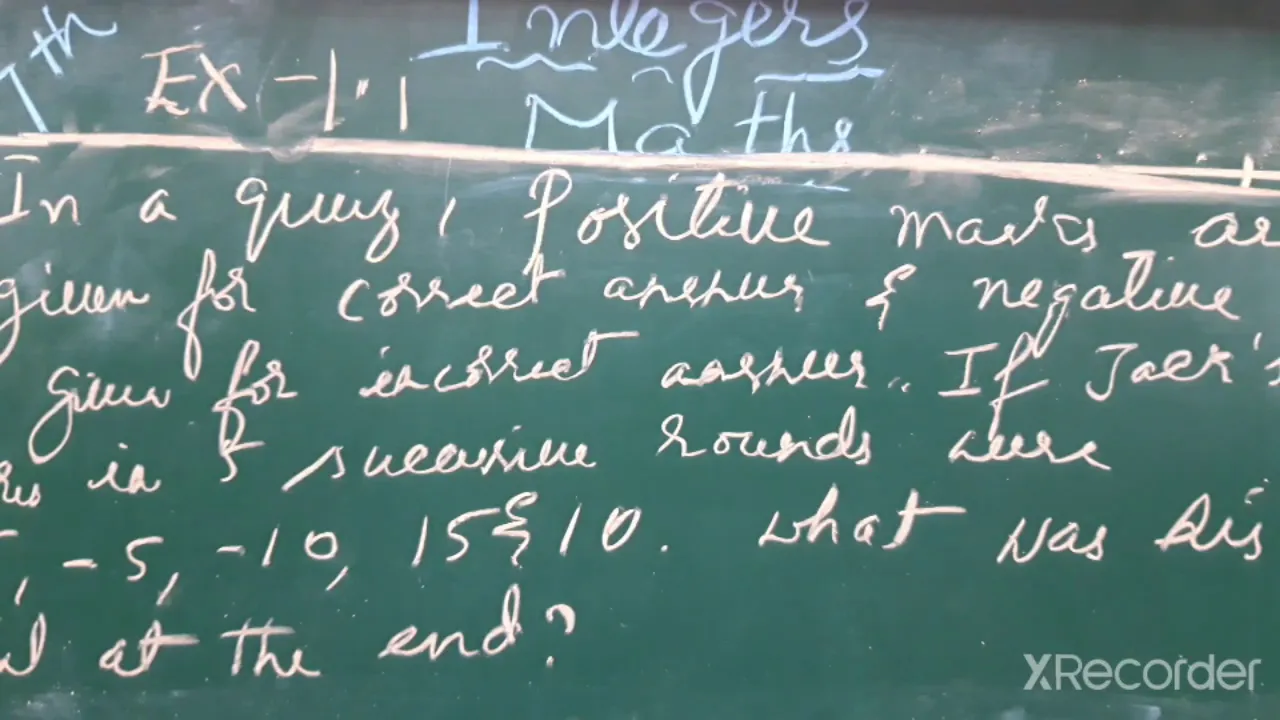 Integers
7th Ex-1.1
Maths
In a quiz, Positive marks ar
given for correct answer & negative
given for incorrect answer. If Jack's
res in 5 successive rounds were
, -5, -10, 15 & 10. what was his
al at the end?
XRecorder